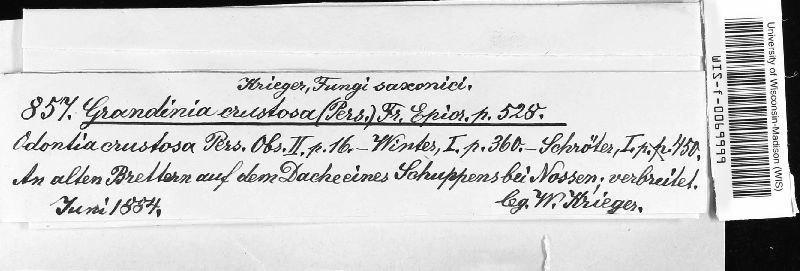 Krieger, Fungi saxonici.
857. Grandinia crustosa (Pers.) Fr. Epicr. p. 528.
Odontia crustosa Pers. Obs. II. p. 16. – Winter, I. p. 360. – Schröter, I. p. p. 450.
An alten Brettern auf dem Dache eines Schuppens bei Nossen, verbreitet.
Juni 1884. lg. W. Krieger.
University of Wisconsin-Madison (WIS)
WIS-f-0069999